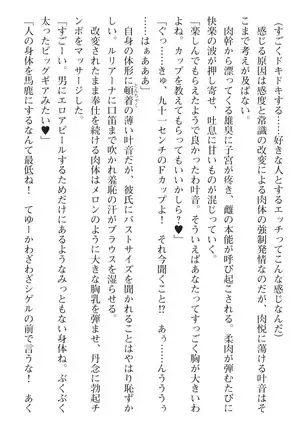 (すごくドキドキする……好きな人とするエッチってこんな感じなんだ)
感じる原因は感度と常識の改変による肉体の強制発情なのだが、肉悦に蕩ける叶音はそこまで考えが及ばない。
肉幹から漂ってくる雄臭に子宮が疼き、雌の本能が呼び起こされる。柔肉が弾むたびに快楽の波が押し寄せ、吐息に甘いものが混じっていく。
「楽しんでもらえたようで良かったわ叶音。そういえばあなたってすっごく胸が大きいわよね。カップを教えてもらってもいいかしら?♥」
「ぐっ……きゅ、九十一センチのFカップよ! それ今聞くこと!? あぅ……んぅううぅ……はぁあああ」
自身の体形に頓着の薄い叶音だが、彼氏にバストサイズを聞かれるとことはやはり恥ずかしい。ルリアーナに口笛まで吹かれて羞恥の汗がブラウスを湿らせる。
改変されたまま奉仕を続ける肉体はメロンのように大きな胸乳を弾ませ、丹念に勃起チンポをマッサージした。
「すごーい。男にエロアピールするためだけにあるようなみっともない身体ね。ぶくぶく太ったビッグギアみたい♥」
「人の身体を馬鹿にするなんて最低ね! てゆーかわざわざシゲルの前で言う!? あく